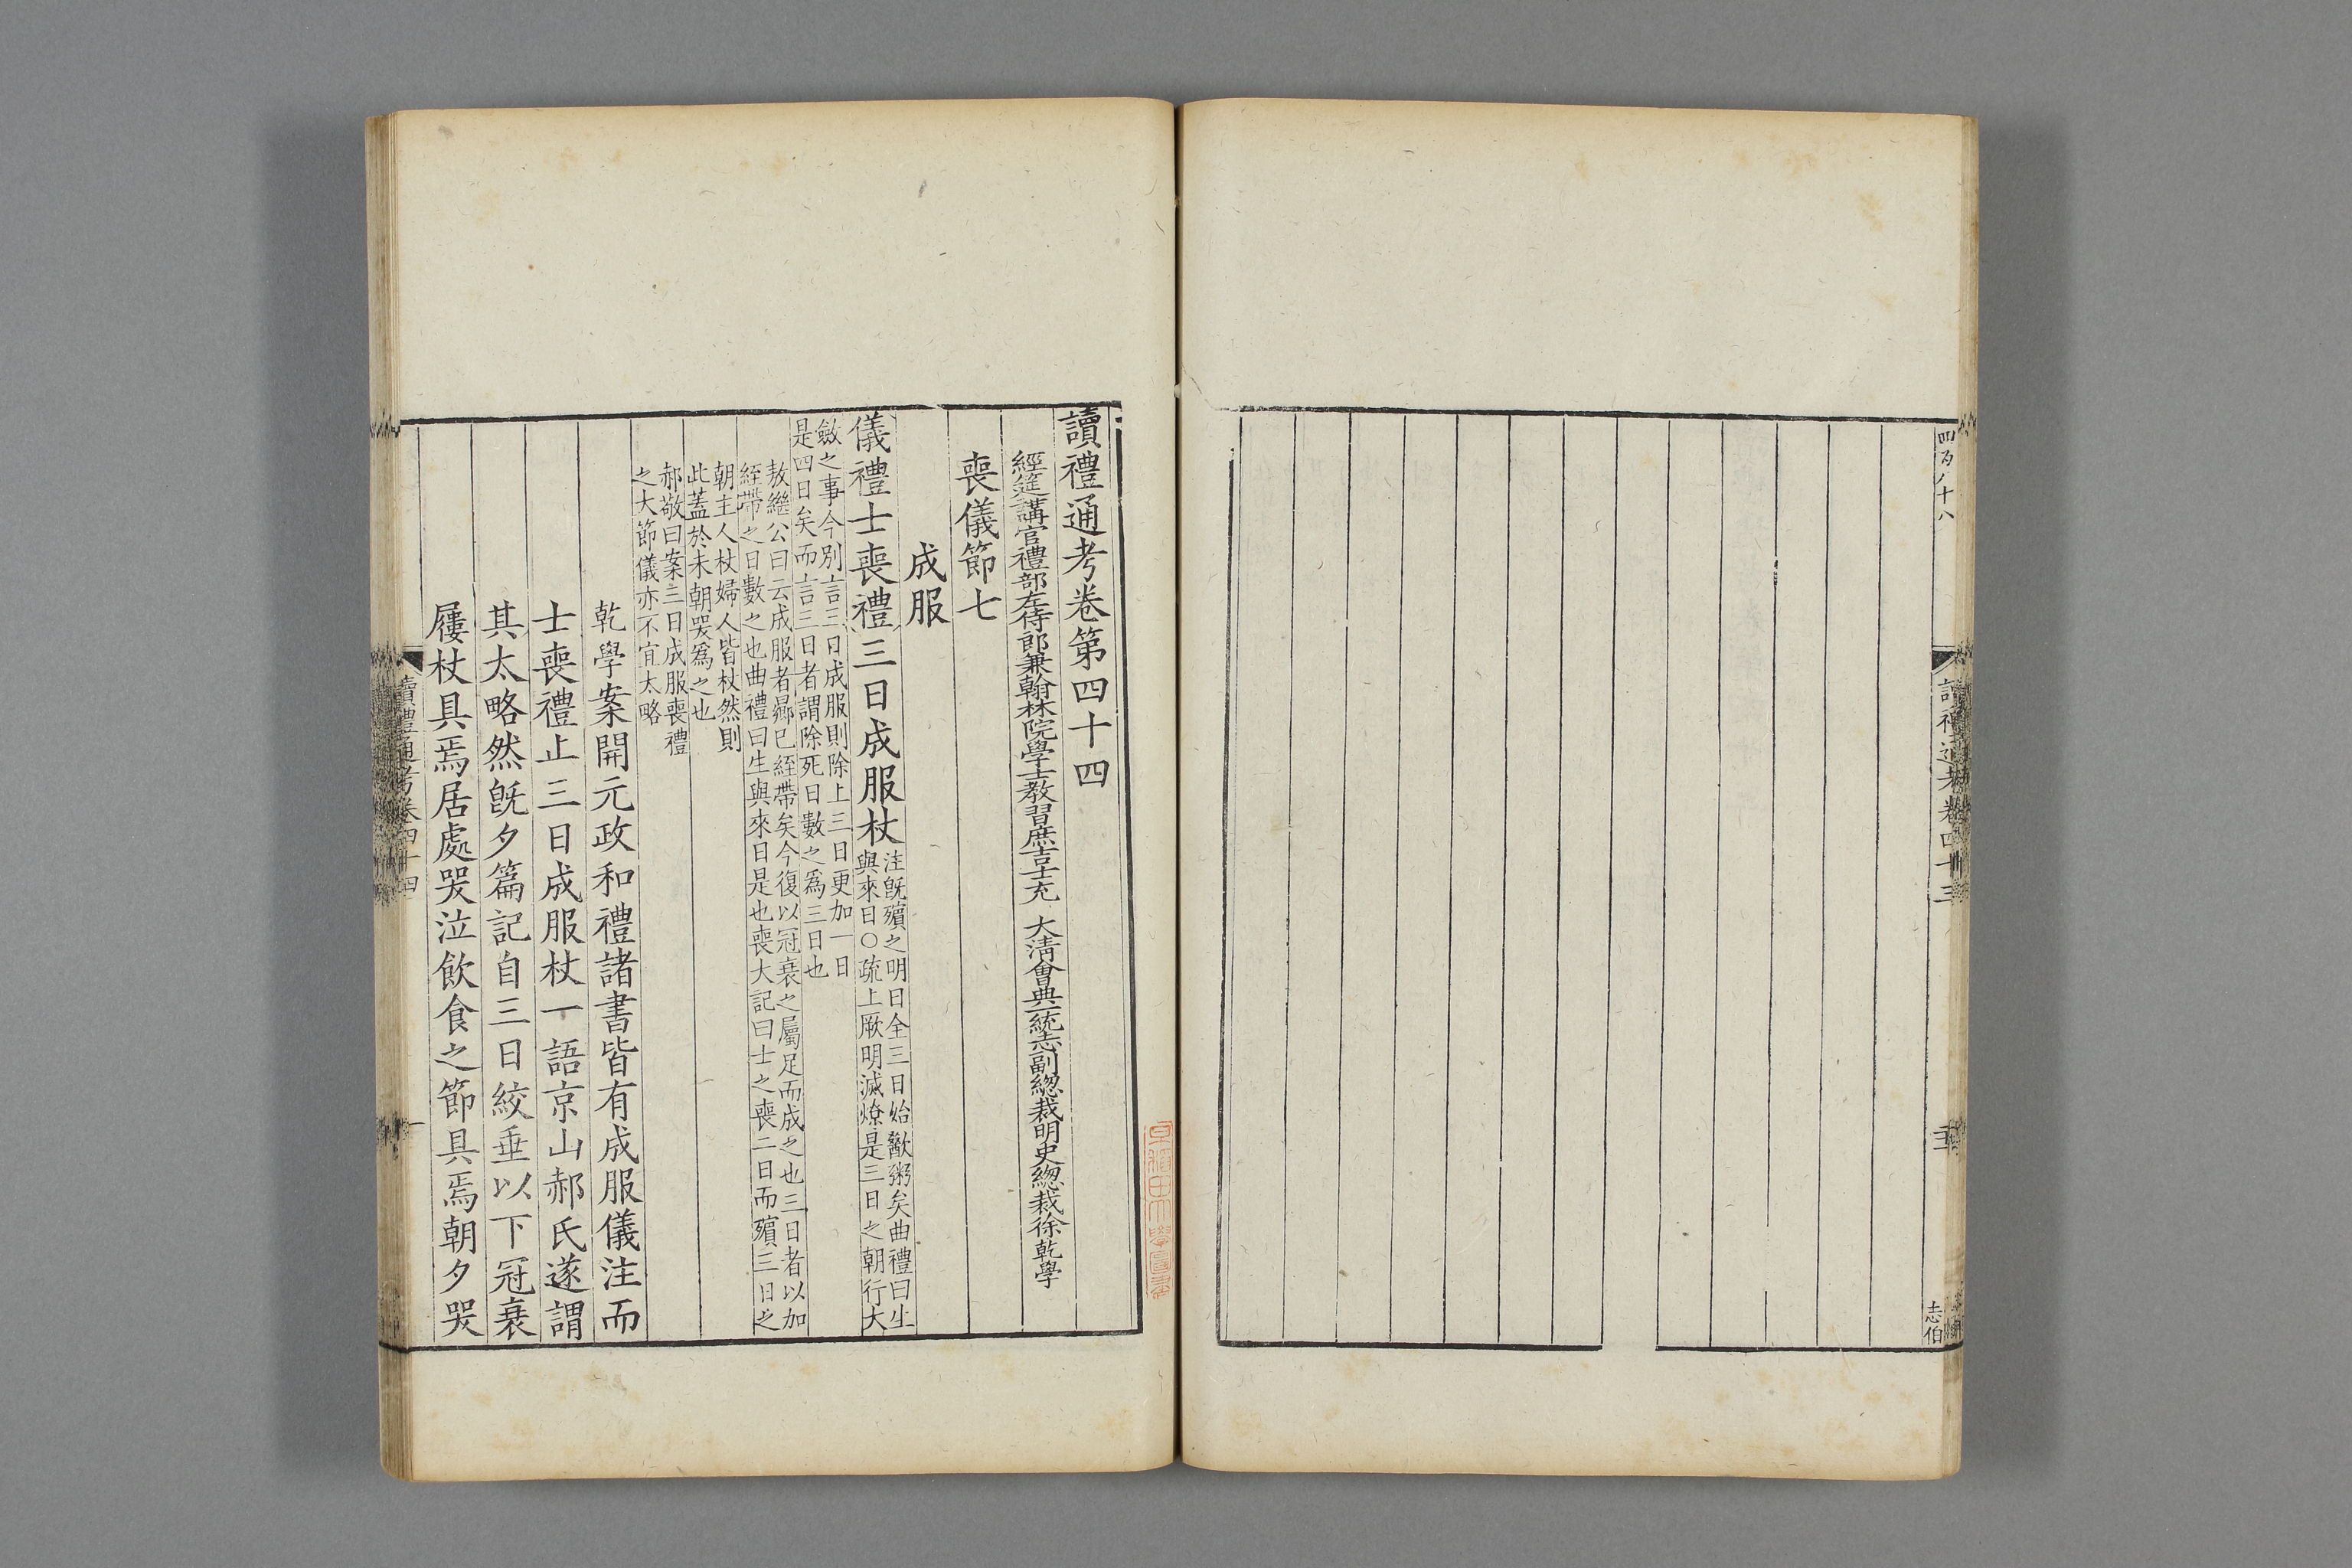 四百八十八
讀禮通考卷四十三
志伯
讀禮通考卷第四十四
經筵講官禮部左侍郎兼翰林院學士教習庶吉士充 大清會典一統志副總裁明史總裁徐乾學
喪儀節七
成服
儀禮士喪禮三日成服杖
注旣殯之明日全三日始歠粥矣曲禮曰生
與來日○疏上厥明滅燎是三日之朝行大
斂之事今別言三日成服則除上三日更加一日
是四日矣而言三日者謂除死日數之爲三日也
敖繼公曰云成服者曏已絰帶矣今復以冠衰之屬足而成之也三日者以加
絰帶之日數之也曲禮曰生與來日是也喪大記曰士之喪二日而殯三日之
朝主人杖婦人皆杖然則
此蓋於未朝哭爲之也
郝敬曰案三日成服喪禮
之大節儀亦不宜太略
乾學案開元政和禮諸書皆有成服儀注而
士喪禮止三日成服杖一語京山郝氏遂謂
其太略然旣夕篇記自三日絞垂以下冠衰
屨杖具焉居處哭泣飲食之節具焉朝夕哭
讀禮通考卷四十四
一